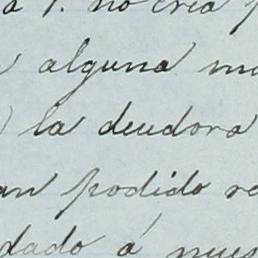 á P. no crea
alguna
la deudora
an podido re
dado á nues